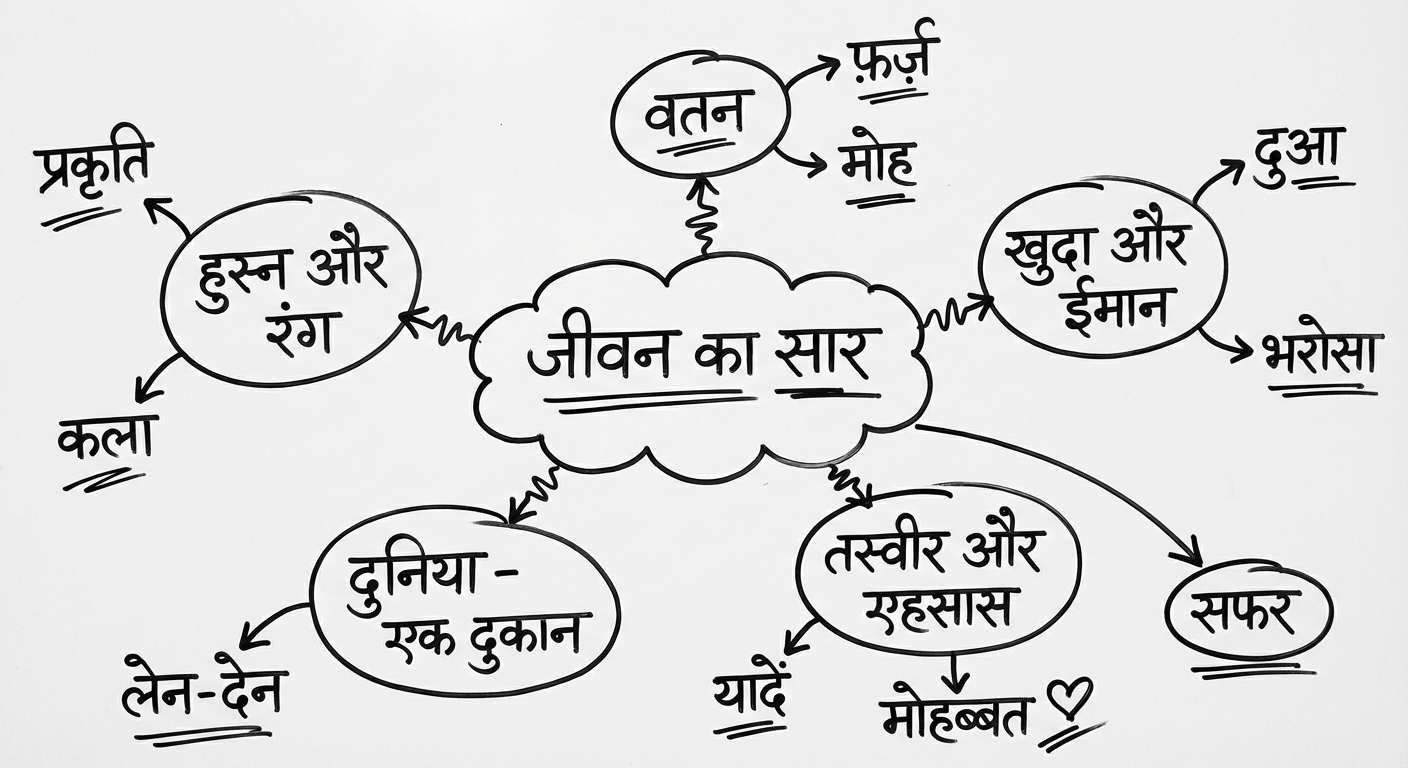 वतन
फ़र्ज़
मोह
प्रकृति
हुस्न और
रंग
कला
दुआ
खुदा और
ईमान
भरोसा
जीवन का सार
दुनिया -
एक दुकान
लेन-देन
तस्वीर और
एहसास
यादें
मोहब्बत ♡
सफर